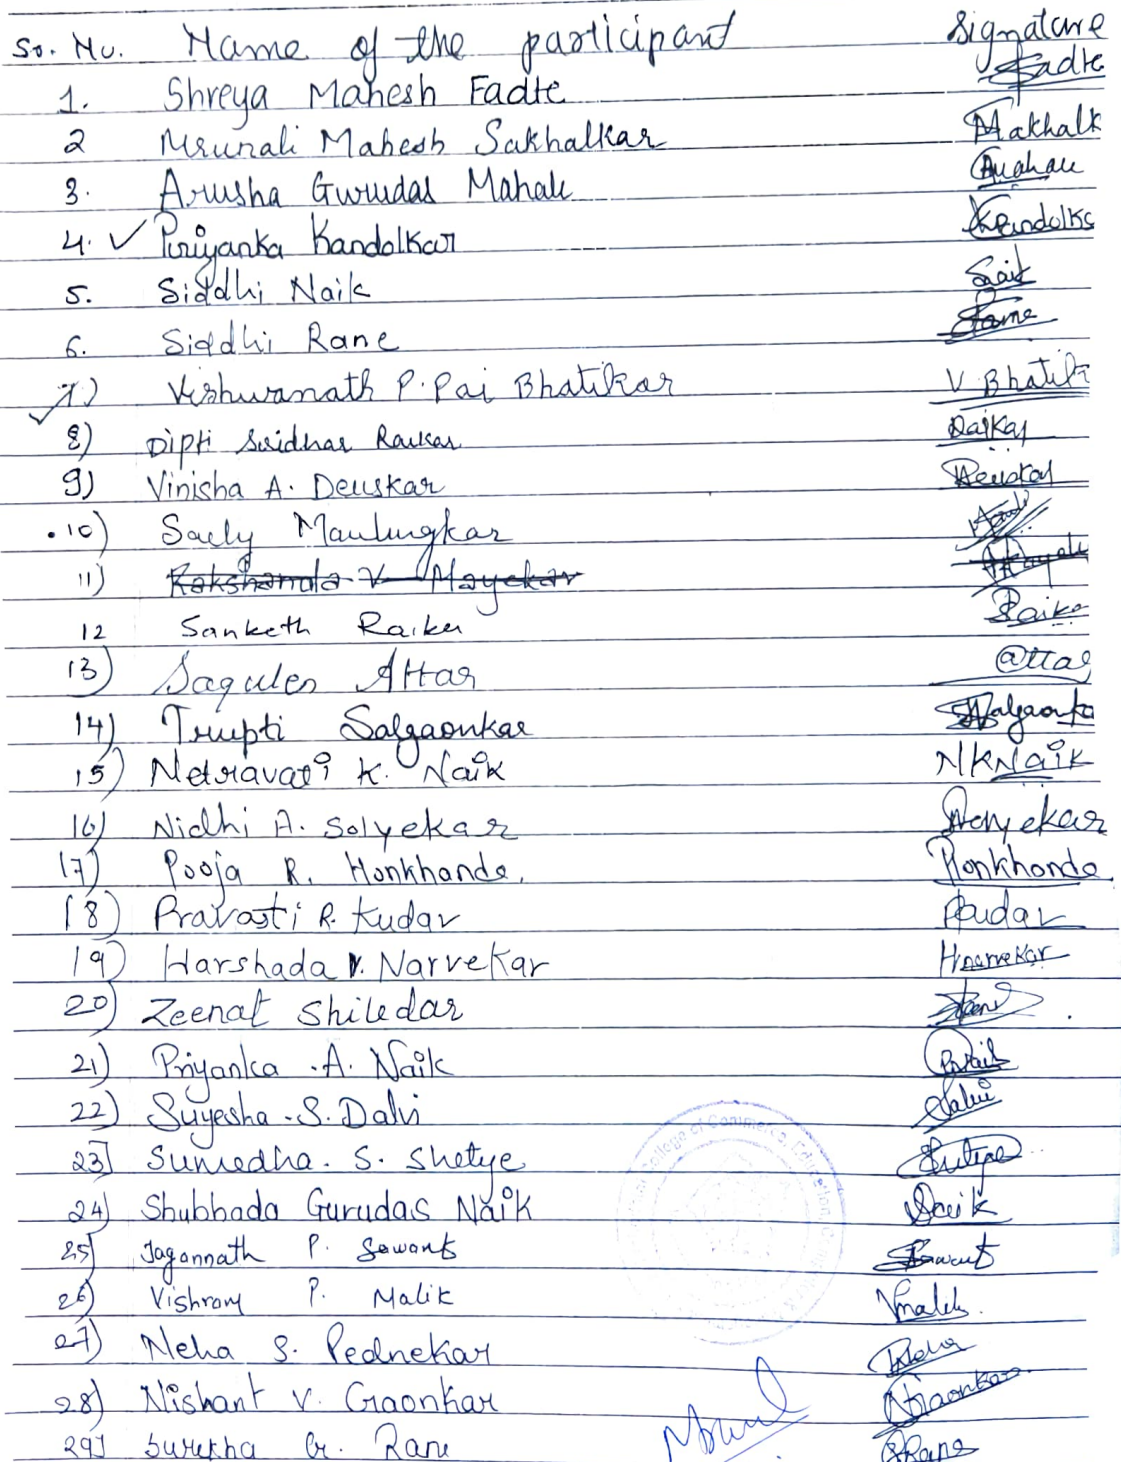 Sr. No. Name of the participant Signature
1. Shreya Mahesh Fadte Fadte
2 Mrunali Mahesh Sakhalkar
3. Arusha Gurudas Mahale
4. ✓ Priyanka Kandolkar
5. Siddhi Naik Naik
6. Siddhi Rane Rane
7) Vishwanath P. Pai Bhatikar V Bhatik
8) Dipti Sridhar Raikar Raikar
9) Vinisha A. Deuskar Deuskar
10) Saely Maulingkar
11) Rakshanda V Mayekar
12 Sanketh Raiker
13) Sagulen Attar @ttar
14) Trupti Salgaonkar
15) Netravati K. Naik NKNaik
16) Nidhi A. Solyekar
17) Pooja R. Honkhande. Honkhande
18) Pravasti R. Kudav
19) Harshada V. Narvekar HNarvekar
20) Zeenat Shiledar
21) Priyanka .A. Naik
22) Suyesha .S. Dalvi
23] Sumedha. S. Shetye
24) Shubhada Gurudas Naik
25] Jagannath P. Sawant
26) Vishram P. Malik Vmalik.
27) Neha S. Pednekar
28) Nishant V. Gaonkar NGaonkar
29] Surekha G. Rane SRane
College of Commerce